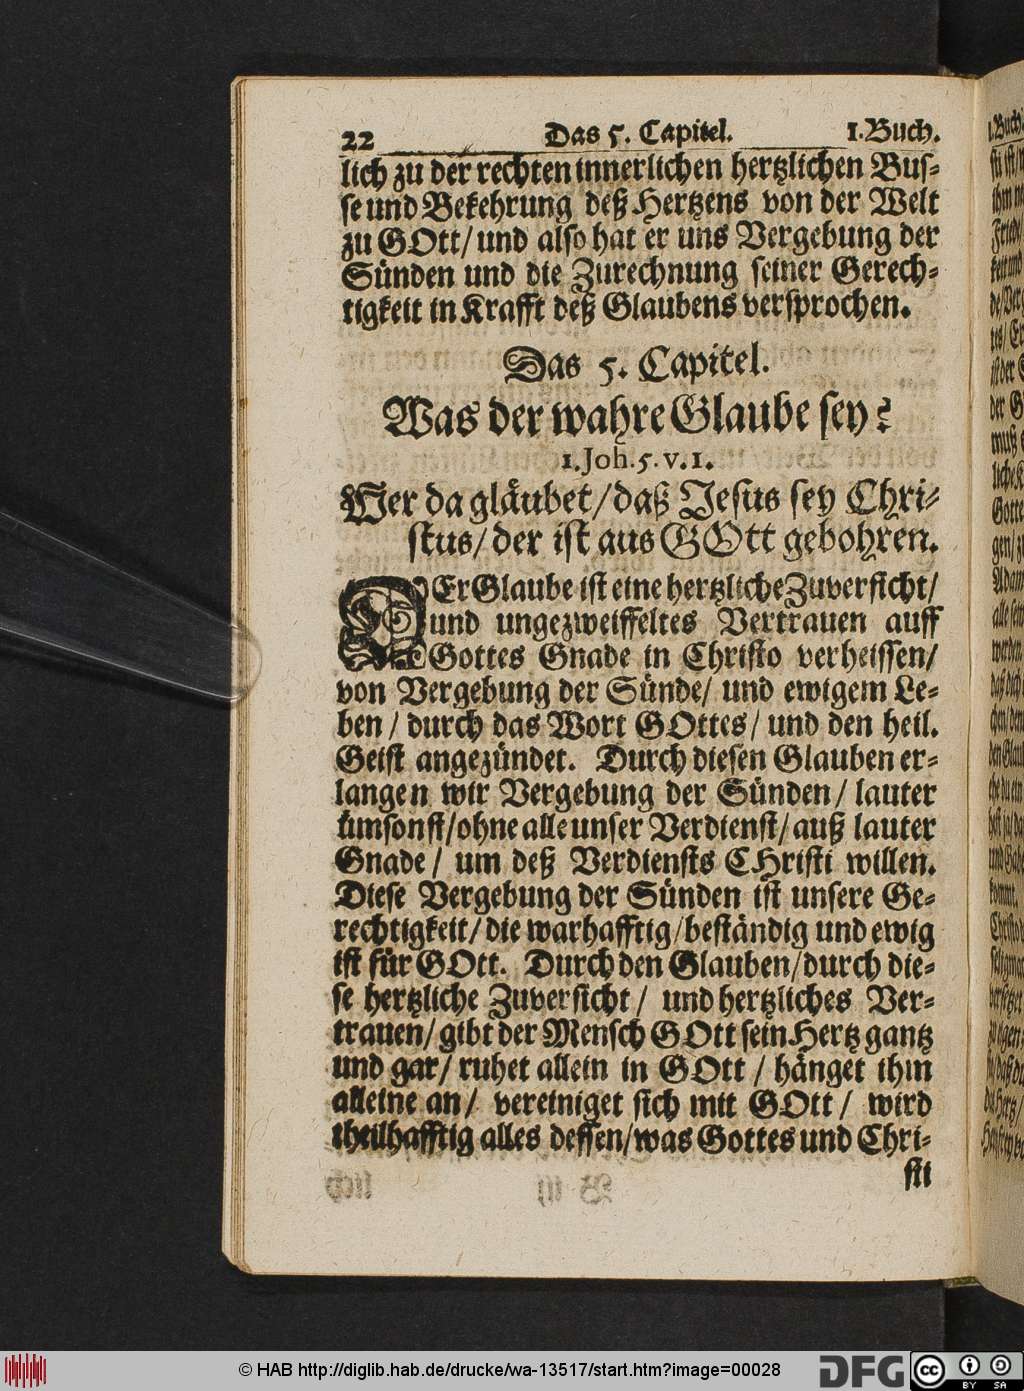 22 Das 5. Capitel. 1. Buch.
lich zu der rechten innerlichen hertzlichen Bus-
se und Bekehrung deß Hertzens von der Welt
zu GOtt/ und also hat er uns Vergebung der
Sünden und die Zurechnung seiner Gerech-
tigkeit in Krafft deß Glaubens versprochen.
Das 5. Capitel.
Was der wahre Glaube sey?
1. Joh. 5. v. 1.
Wer da gläubet/ daß Jesus sey Chri-
stus/ der ist aus GOtt gebohren.
DEr Glaube ist eine hertzliche Zuversicht/
und ungezweiffeltes Vertrauen auff
Gottes Gnade in Christo verheissen/
von Vergebung der Sünde/ und ewigem Le-
ben/ durch das Wort GOttes/ und den heil.
Geist angezündet. Durch diesen Glauben er-
langen wir Vergebung der Sünden/ lauter
ümsonst/ ohne alle unser Verdienst/ auß lauter
Gnade/ um deß Verdiensts CHristi willen.
Diese Vergebung der Sünden ist unsere Ge-
rechtigkeit/ die warhafftig/ beständig und ewig
ist für GOtt. Durch den Glauben/ durch die-
se hertzliche Zuversicht/ und hertzliches Ver-
trauen/ gibt der Mensch GOtt sein Hertz gantz
und gar/ ruhet allein in GOtt/ hänget ihm
alleine an/ vereiniget sich mit GOtt/ wird
theilhafftig alles dessen/ was Gottes und Chri-
sti
© HAB http://diglib.hab.de/drucke/wa-13517/start.htm?image=00028
DFG
cc BY SA